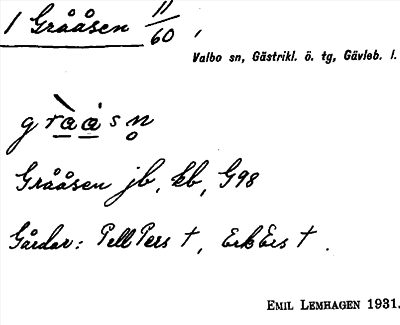 1 Grååsen 11/60,
Valbo sn, Gästrikl. ö. tg, Gävleb. l.
Grååsen jb, kb, G98
Gårdar: Pell Pers †, Erk Ers †.
EMIL LEMHAGEN 1931.